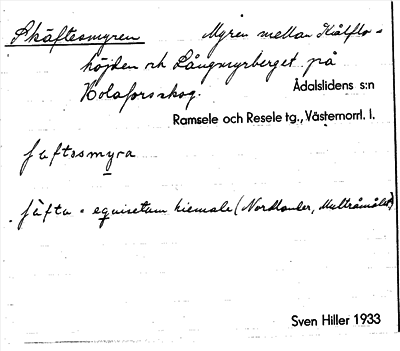 Skäftesmyren Myren mellan Kålflo-
höjden och Långmyrberget på
Holaforsskog.
Ådalslidens s:n
Ramsele och Resele tg., Västernorrl. l.
ʃäftssmyra
ʃäfta = equisetum hiemale (Nordlander, Multråmålet)
Sven Hiller 1933